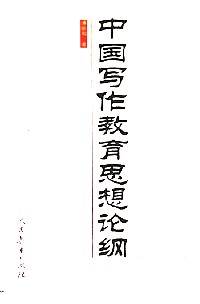 中国写作教育思想论纲
人民教育出版社